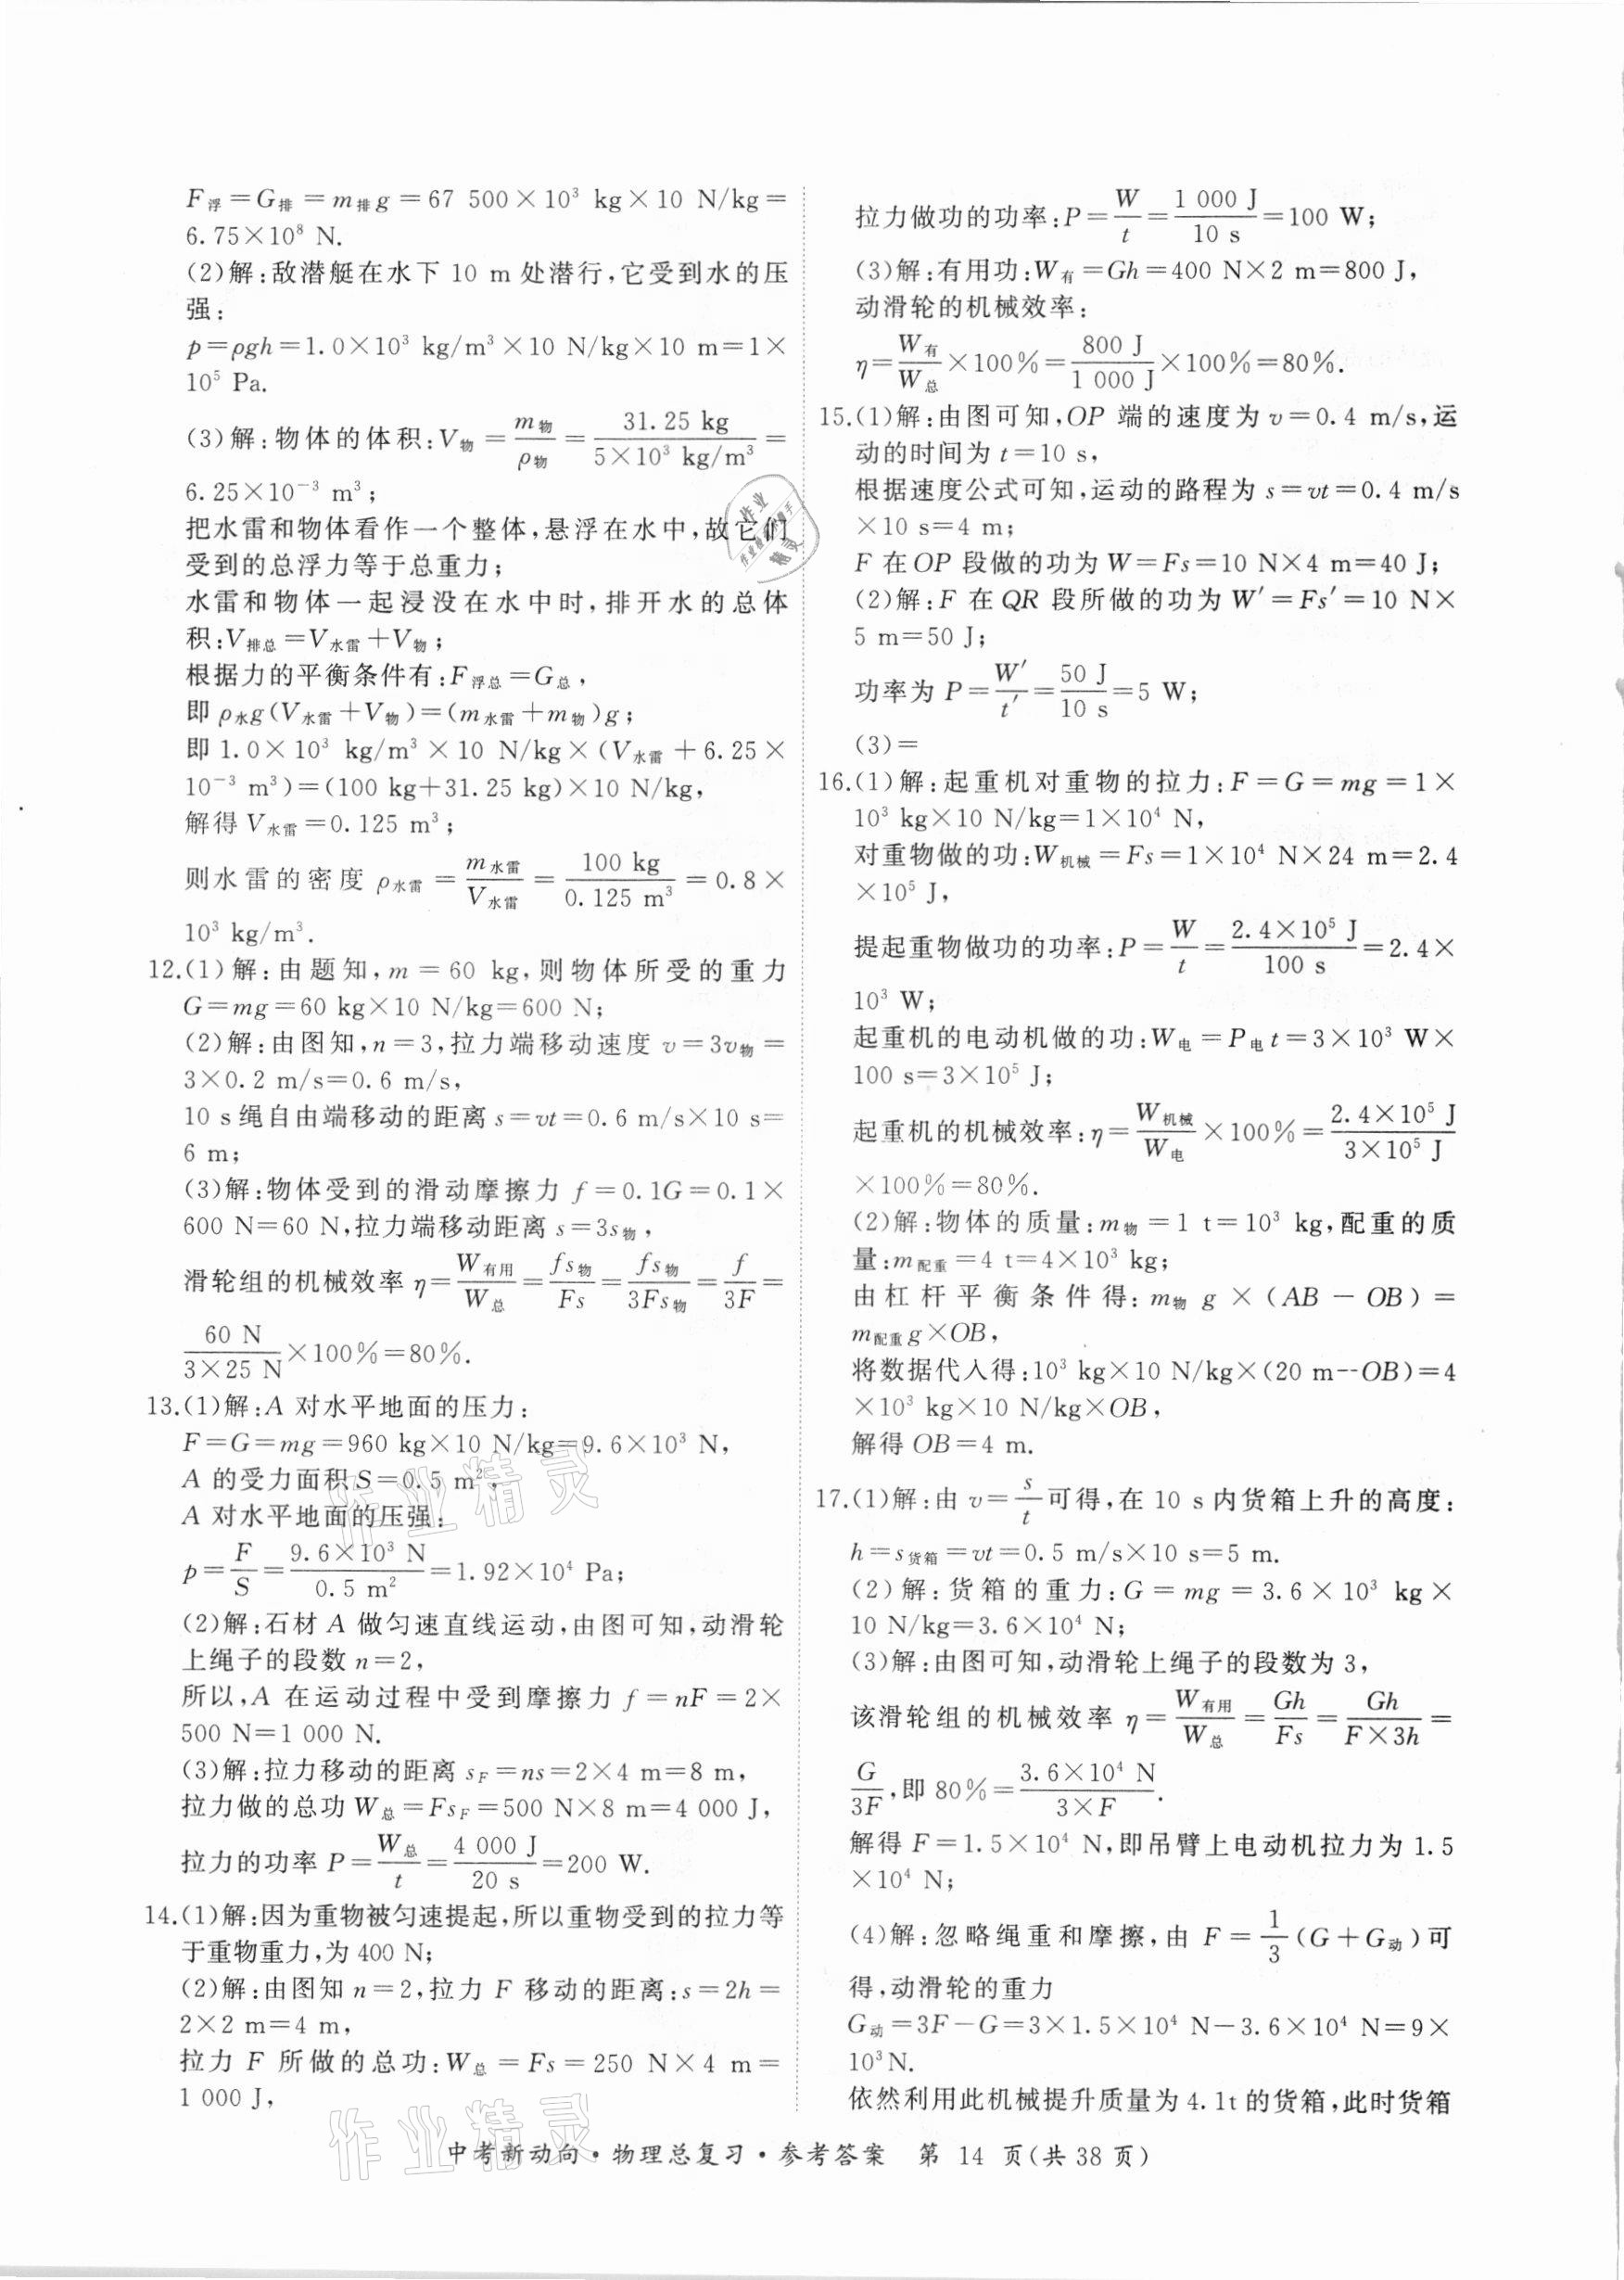 F浮=G排=m排g=67 500×10³ kg×10 N/kg=
6.75×10⁸ N.
(2)解:敌潜艇在水下 10 m 处潜行,它受到水的压
强:
p=ρgh=1.0×10³ kg/m³×10 N/kg×10 m=1×
10⁵ Pa.
(3)解:物体的体积:V物=m物/ρ物=31.25 kg/5×10³ kg/m³=
6.25×10⁻³ m³;
把水雷和物体看作一个整体,悬浮在水中,故它们
受到的总浮力等于总重力;
水雷和物体一起浸没在水中时,排开水的总体
积:V排总=V水雷+V物;
根据力的平衡条件有:F浮总=G总,
即 ρ水g(V水雷+V物)=(m水雷+m物)g;
即 1.0×10³ kg/m³×10 N/kg×(V水雷+6.25×
10⁻³ m³)=(100 kg+31.25 kg)×10 N/kg,
解得 V水雷=0.125 m³;
则水雷的密度 ρ水雷=m水雷/V水雷=100 kg/0.125 m³=0.8×
10³ kg/m³.
12.(1)解:由题知,m=60 kg,则物体所受的重力
G=mg=60 kg×10 N/kg=600 N;
(2)解:由图知,n=3,拉力端移动速度 v=3v物=
3×0.2 m/s=0.6 m/s,
10 s绳自由端移动的距离 s=vt=0.6 m/s×10 s=
6 m;
(3)解:物体受到的滑动摩擦力 f=0.1G=0.1×
600 N=60 N,拉力端移动距离 s=3s物,
滑轮组的机械效率 η=W有用/W总=fs物/Fs=fs物/3Fs物=f/3F=
60 N/3×25 N×100%=80%.
13.(1)解:A 对水平地面的压力:
F=G=mg=960 kg×10 N/kg=9.6×10³ N,
A 的受力面积 S=0.5 m²,
A 对水平地面的压强:
p=F/S=9.6×10³ N/0.5 m²=1.92×10⁴ Pa;
(2)解:石材 A 做匀速直线运动,由图可知,动滑轮
上绳子的段数 n=2,
所以,A 在运动过程中受到摩擦力 f=nF=2×
500 N=1 000 N.
(3)解:拉力移动的距离 sF=ns=2×4 m=8 m,
拉力做的总功 W总=FsF=500 N×8 m=4 000 J,
拉力的功率 P=W总/t=4 000 J/20 s=200 W.
14.(1)解:因为重物被匀速提起,所以重物受到的拉力等
于重物重力,为 400 N;
(2)解:由图知 n=2,拉力 F 移动的距离:s=2h=
2×2 m=4 m,
拉力 F 所做的总功:W总=Fs=250 N×4 m=
1 000 J,
拉力做功的功率:P=W/t=1 000 J/10 s=100 W;
(3)解:有用功:W有=Gh=400 N×2 m=800 J,
动滑轮的机械效率:
η=W有/W总×100%=800 J/1 000 J×100%=80%.
15.(1)解:由图可知,OP 端的速度为 v=0.4 m/s,运
动的时间为 t=10 s,
根据速度公式可知,运动的路程为 s=vt=0.4 m/s
×10 s=4 m;
F 在 OP 段做的功为 W=Fs=10 N×4 m=40 J;
(2)解:F 在 QR 段所做的功为 W′=Fs′=10 N×
5 m=50 J;
功率为 P=W′/t′=50 J/10 s=5 W;
(3)=
16.(1)解:起重机对重物的拉力:F=G=mg=1×
10³ kg×10 N/kg=1×10⁴ N,
对重物做的功:W机械=Fs=1×10⁴ N×24 m=2.4
×10⁵ J,
提起重物做功的功率:P=W/t=2.4×10⁵ J/100 s=2.4×
10³ W;
起重机的电动机做的功:W电=P电t=3×10³ W×
100 s=3×10⁵ J;
起重机的机械效率:η=W机械/W电×100%=2.4×10⁵ J/3×10⁵ J
×100%=80%.
(2)解:物体的质量:m物=1 t=10³ kg,配重的质
量:m配重=4 t=4×10³ kg;
由杠杆平衡条件得:m物g×(AB-OB)=
m配重g×OB,
将数据代入得:10³ kg×10 N/kg×(20 m--OB)=4
×10³ kg×10 N/kg×OB,
解得 OB=4 m.
17.(1)解:由 v=s/t可得,在 10 s 内货箱上升的高度:
h=s货箱=vt=0.5 m/s×10 s=5 m.
(2)解:货箱的重力:G=mg=3.6×10³ kg×
10 N/kg=3.6×10⁴ N;
(3)解:由图可知,动滑轮上绳子的段数为 3,
该滑轮组的机械效率 η=W有用/W总=Gh/Fs=Gh/F×3h=
G/3F,即 80%=3.6×10⁴ N/3×F.
解得 F=1.5×10⁴ N,即吊臂上电动机拉力为 1.5
×10⁴ N;
(4)解:忽略绳重和摩擦,由 F=1/3(G+G动)可
得,动滑轮的重力
G动=3F-G=3×1.5×10⁴ N-3.6×10⁴ N=9×
10³N.
依然利用此机械提升质量为 4.1t 的货箱,此时货箱
中考新动向·物理总复习·参考答案 第 14 页(共 38 页)
作业精灵
作业精灵
作业
精灵